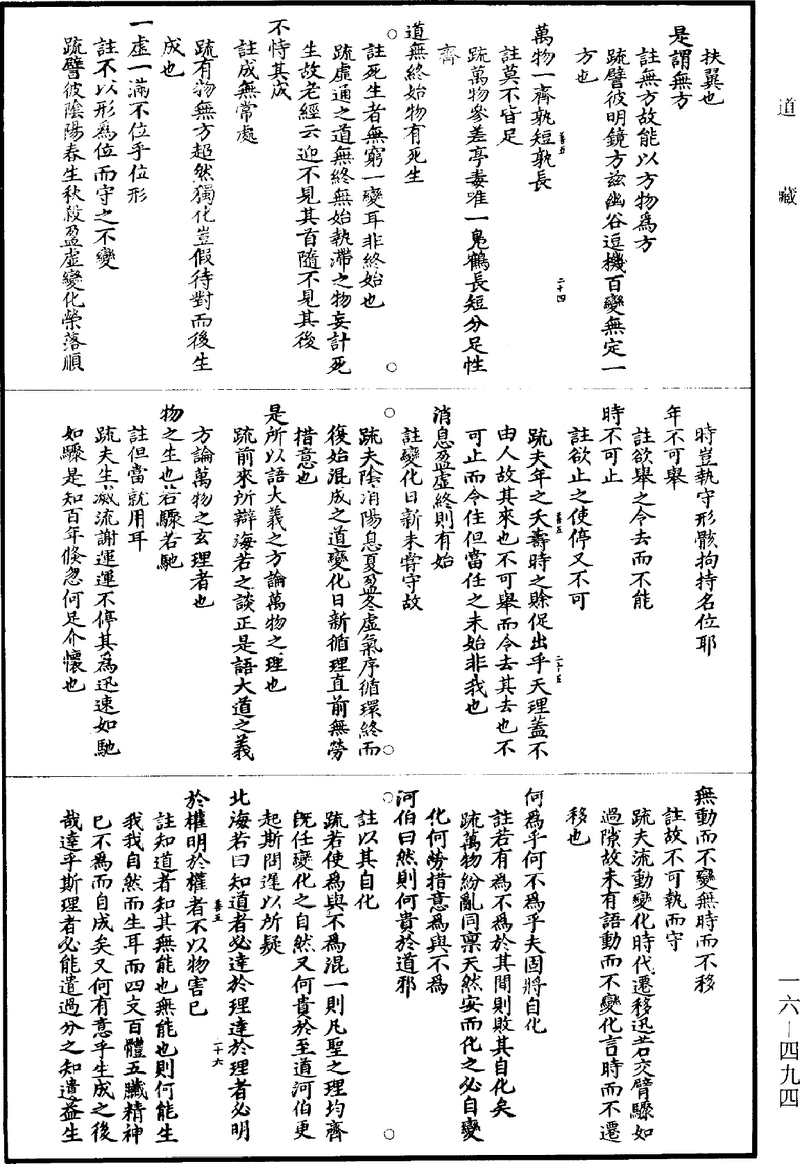 道藏
扶翼也
是謂無方
註無方故能以方物爲方
䟽譬彼明鏡方兹幽谷逗機百變無定一
方也
萬物一齊孰短孰長
善五
二十四
註莫不皆足
䟽萬物參差亭毒唯一鳬鶴長短分足性
齊
道無終始物有死生
註死生者無窮一變耳非終始也
䟽虚通之道無終無始執滯之物妄計死
生故老經云迎不見其首隨不見其後
不恃其成
註成無常處
䟽有物無方超然獨化豈假待對而後生
成也
一虚一滿不位乎位形
註不以形爲位而守之不變
䟽譬彼陰陽春生秋殺盈虚變化榮落順
時豈執守形骸拘持名位耶
年不可舉
註欲舉之令去而不能
時不可止
註欲止之使停又不可
善五
二十五
䟽夫年之夭壽時之賒促出乎天理蓋不
由人故其來也不可舉而令去其去也不
可止而令住但當任之未始非我也
消息盈虚終則有始
註變化日新未嘗守故
䟽夫陰消陽息夏盈冬虚氣序循環終而
復始混成之道變化日新循理直前無勞
措意也
是所以語大義之方論萬物之理也
䟽前來所辯海若之談正是語大道之義
方論萬物之玄理者也
物之生也若驟若馳
註但當就用耳
䟽夫生滅流謝運運不停其爲迅速如馳
如驟是知百年倐忽何足介懷也
無動而不變無時而不移
註故不可執而守
䟽夫流動變化時代遷移迅若交臂驟如
過隙故未有語動而不變化言時而不遷
移也
何爲乎何不爲乎夫固將自化
註若有爲不爲於其間則敗其自化矣
䟽萬物紛亂同禀天然安而化之必自變
化何勞措意爲與不爲
河伯曰然則何貴於道邪
註以其自化
䟽若使爲與不爲混一則凡聖之理均齊
旣任變化之自然又何貴於至道河伯更
起斯問遲以所疑
北海若曰知道者必達於理達於理者必明
善五
二十六
於權明於權者不以物害已
註知道者知其無能也無能也則何能生
我我自然而生耳而四支百體五臟精神
已不爲而自成矣又何有意乎生成之後
哉達乎斯理者必能遣過分之知遺益生
一六—四九四